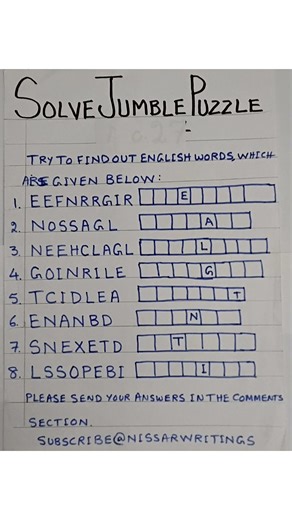 SOLVE JUMBLE PUZZLE
TRY TO FIND OUT ENGLISH WORDS, WHICH
ARE GIVEN BELOW:
1. EEFNRRGIR E
2. NOSSAGL A
3. NEEHCLAGL L
4. GOINRILE G
5. TCIDLEA T
6. ENANBD N
7. SNEXETD T
8. LSSOPEBI I
PLEASE SEND YOUR ANSWERS IN THE COMMENTS
SECTION.
SUBSCRIBE@NISSARWRITINGS